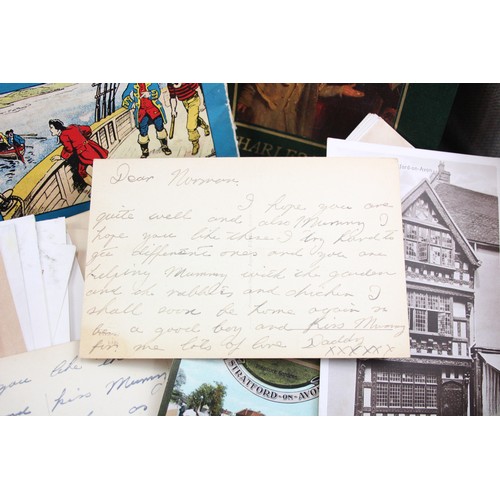 HARLES
Dear Norman
I hope you are
quite well and also Mummy I
hope you like these I try hard to
get different ones and you are
helping Mummy with the garden
and the rabbits and chicken I
shall soon be home again so
be a good boy and kiss Mummy
for me lots of love Daddy
xxxxxx
you like the
kiss Mumm
STRATFORD-ON-AVON